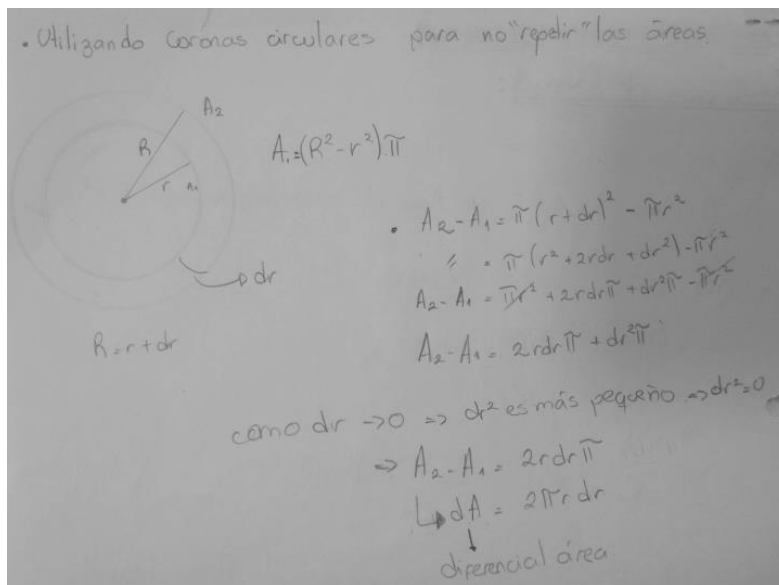 • Utilizando coronas circulares para no "repetir" las áreas.
A₂
R
r A₁
A₁=(R²-r²)π
dr
R=r+dr
• A₂-A₁ = π(r+dr)² - πr²
〃 = π(r²+2rdr+dr²)-πr²
A₂-A₁ = πr²+2rdrπ+dr²π-πr²
A₂-A₁ = 2rdrπ+dr²π
como dr →0 => dr² es más pequeño => dr²=0
=> A₂-A₁ = 2rdrπ
↳ dA = 2πr dr
↓
diferencial área